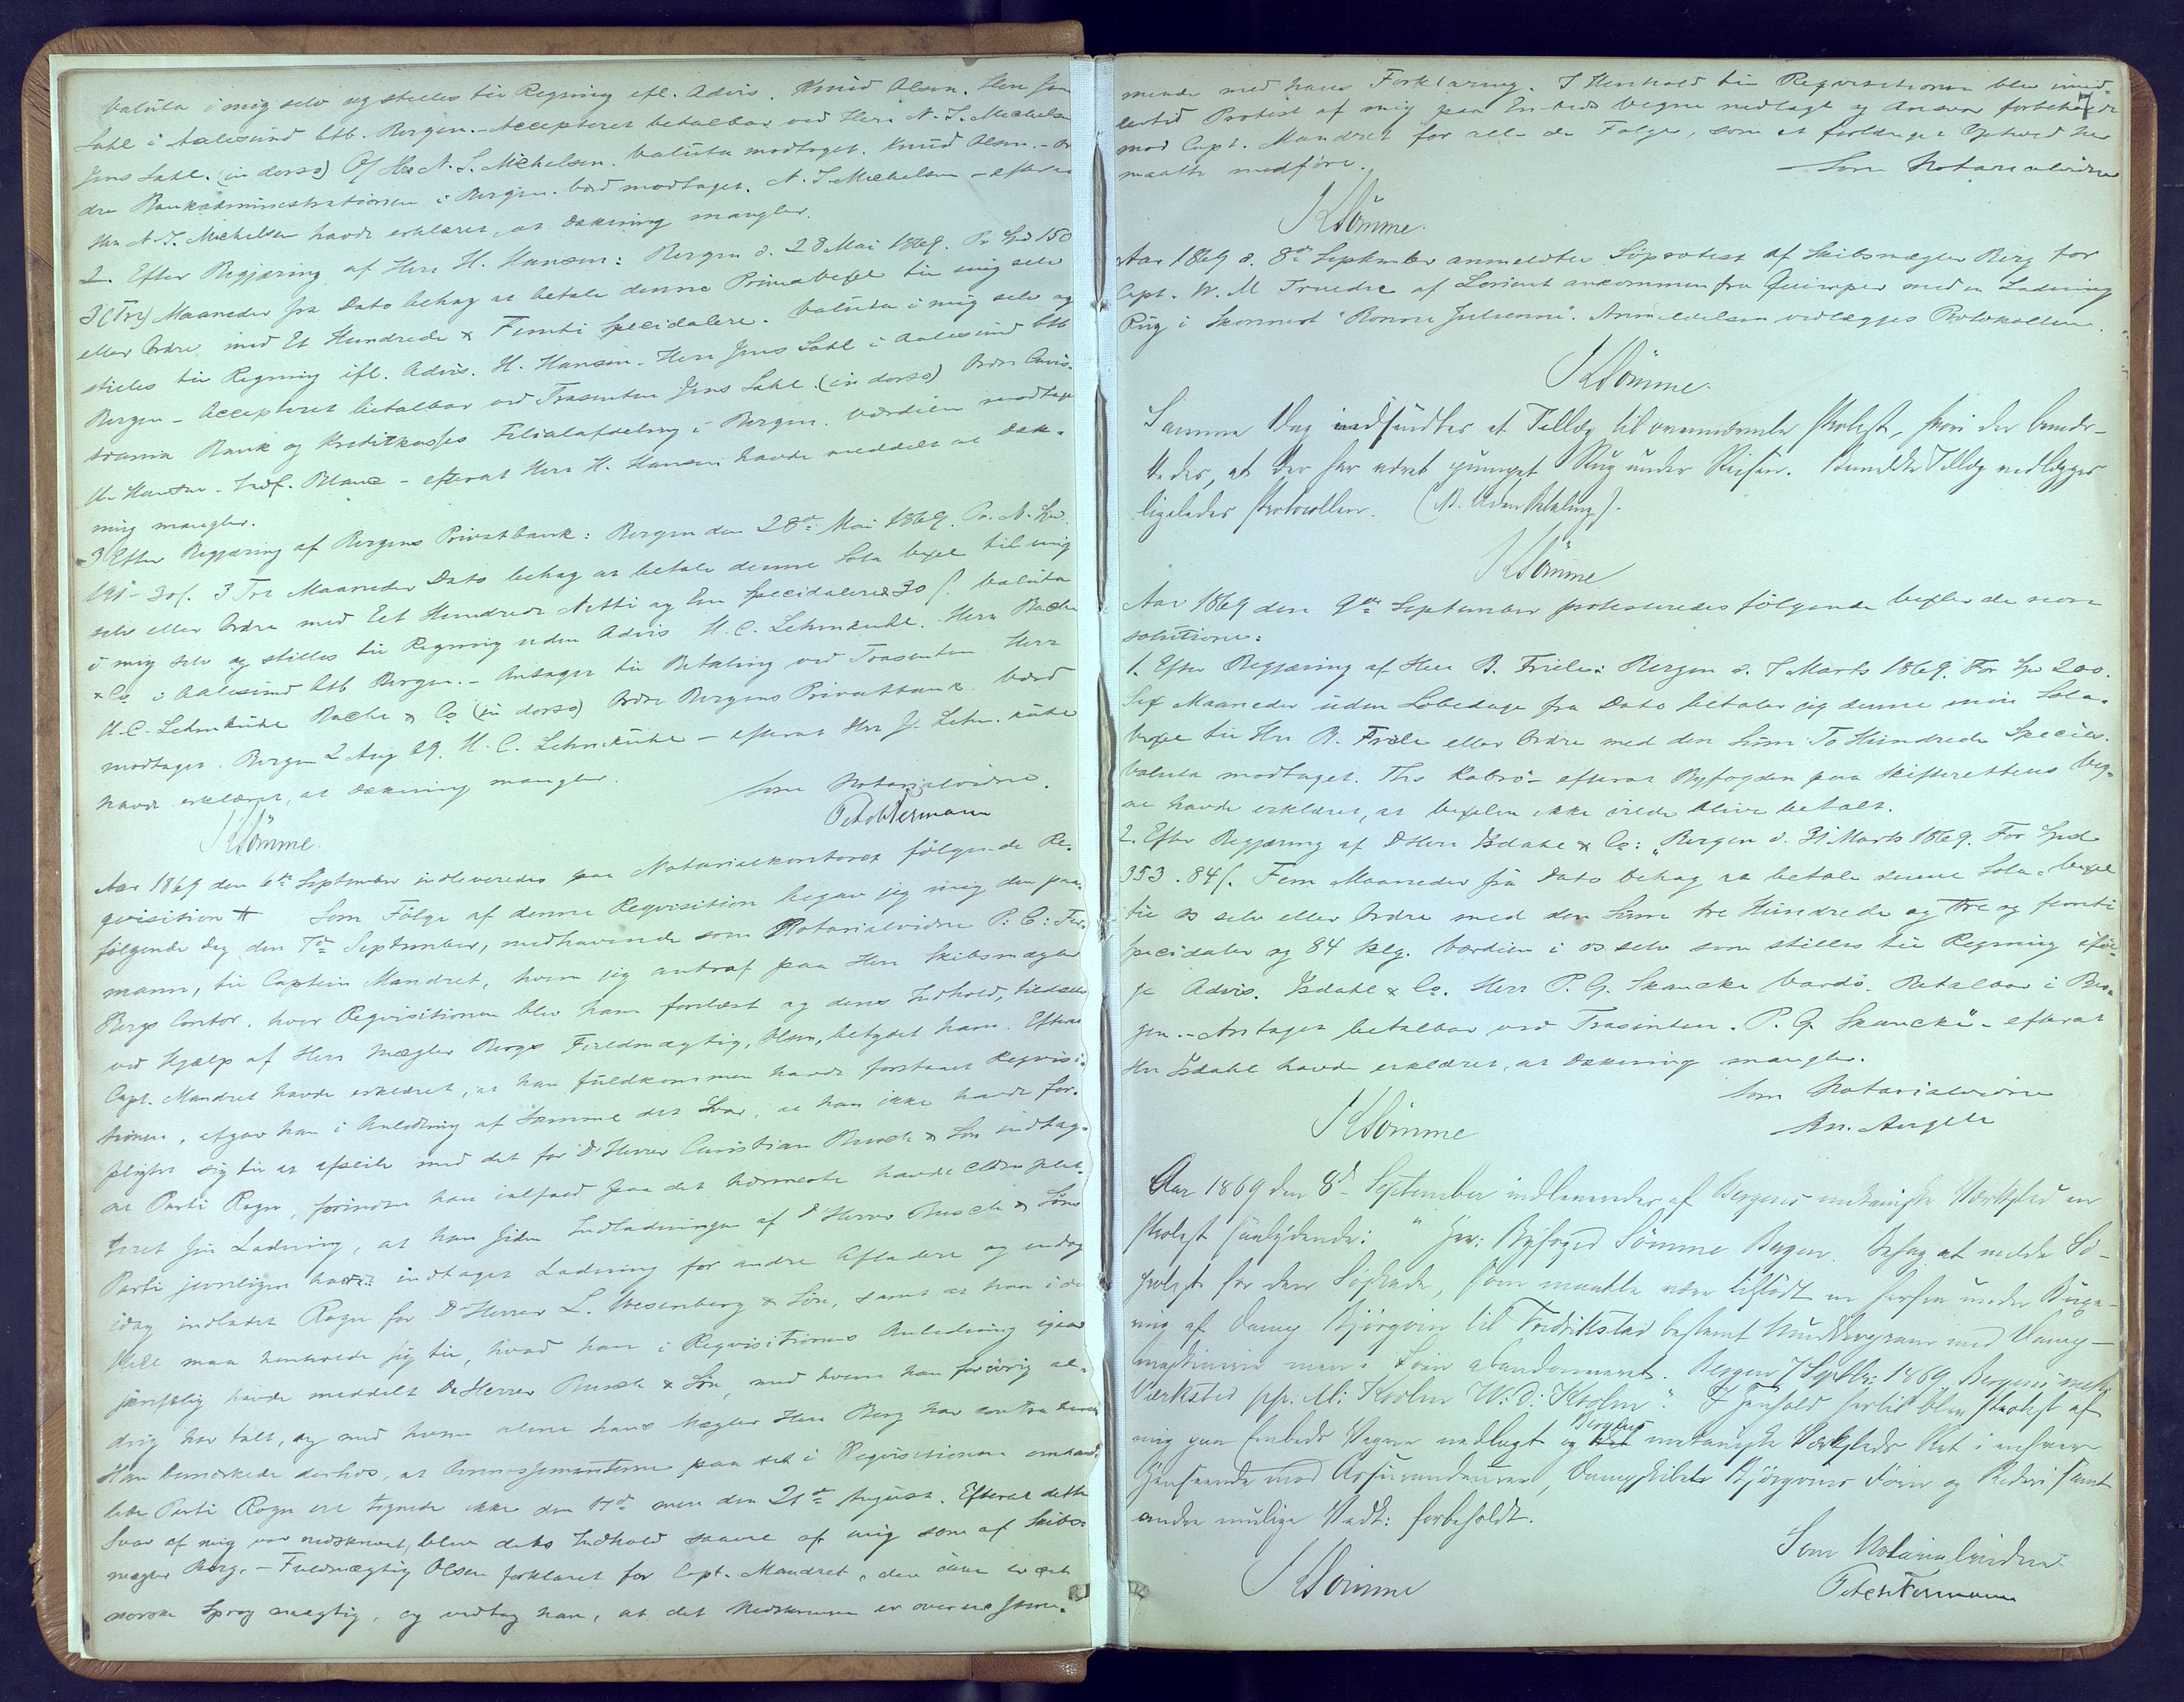 Valuta i mig selv og stilles til Regning ifl. Advis. Knud Olsen. Herr Jens
Dahl i Aalesund btb. Bergen. - Accepteret betalbar ved Herr N. S. Michelsen
Jens Dahl. (in dorso) Of Hrr N. S. Michelsen. Valuta modtaget. Knud Olsen. - Or
dre Bankadministrationen i Bergen. Værd modtaget. N. S. Michelsen - efterat
Hrr N. S. Michelsen havde erklæret, at Dækning mangler.
2. Efter Begjæring af Herr H. Hansen: Bergen d. 28 Mai 1869. Pr Spd 150
3 (Tre) Maaneder fra Dato behag at betale denne Primavexel til mig selv
eller Ordre med Et Hundrede & Femti Speciedalere. Valuta i mig selv og
stilles til Regning ifl. Advis. H. Hansen - Herr Jens Dahl i Aalesund btb
Bergen - Accepteret betalbar ved Trasenten Jens Dahl. (in dorso) Ordre Chris-
tiania Bank og Kreditkasses Filialafdeling i Bergen. Værdien modtaget
H. Hansen - Indf. Blanc - efterat Herr H. Hansen havde meddelt at Dæk-
ning mangler.
3 Efter Begjæring af Bergens Privatbank: Bergen den 28de Mai 1869. Pr. N. Spd.
191 - 30 s. 3 Tre Maaneder Dato behag at betale denne Sola Vexel til mig
selv eller Ordre med Eet Hundrede Nitti og En Speciedalere 30 s. Valuta
i mig selv og stilles til Regning uden Advis H. C. Lehmkuhl. Herr Bache
& Co i Aalesund btb Bergen. - Antaget til Betaling ved Trasenten Herr
H. C. Lehmkuhl Bache & Co (in dorso) Ordre Bergens Privatbank. Værd
modtaget. Bergen 2 Aug 69. H. C. Lehmkuhl - efterat Hrr J. Lehmkuhl
havde erklæret, at Dækning mangler.
Som Notarialvidne.
KSömme. Peter Fermann
Aar 1869 den 6te September indleveredes paa Notarialkontoret følgende Re-
quisition # Som Følge af denne Reqvisition begav jeg mig den paa-
følgende Dag den 7de September, medhavende som Notarialvidne P: C: Fer-
mann, til Captein Mandret, hvem jeg antraf paa Herr Skibsmægler
Bergs Contor, hvor Reqvisitionen blev ham forelæst og dens Indhold, tildels
ved Hjælp af Herr Mægler Bergs Fuldmægtig, Olsen, betydet ham. Efterat
Capt. Mandret havde erklæret, at han fuldkommen havde forstaaet Reqvisi-
tionen, afgav han i Anledning af samme det Svar, at han ikke havde for-
pligtet sig til at afseile med det for D'Herrer Christian Busch & Søn indtag-
ne Parti Rogn, førinden han ialfald paa det nærmeste havde comple-
teret sin Ladning, at han siden Indladningen af D'Herrer Busch & Søns
Parti jevnligen havde indtaget Ladning for andre Afladere og endog
idag indladet Rogn for D'Herrer L. Wesenberg & Søn, samt at han i det
Hele maa henholde sig til, hvad han i Reqvisitionens Anledning igaar
havde meddelt De Herrer Busch & Søn, med hvem han forøvrig al-
drig har talt, og med hvem alene hans Mægler Herr Berg har contraheret
Han bemærkede derhos, at Connossementerne paa det i Reqvisitionen omhand-
lede Parti Rogn ere tegnede ikke den 17de men den 21de August. Efterat dette
Svar af mig var nedskrevet, blev dets Indhold saavel af mig som af Skibs-
mægler Berg. - Fuldmægtig Olsen forklaret for Capt. Mandret, der ikke er det
norske Sprog mægtig, og vedtog han, at det Nedskrevne er overensstem-
mende med hans Forklaring. I Henhold til Reqvisitionen blev imid-
lertid Protest af mig paa Embeds Vegne nedlagt og Ansvar forbeholdt
mod Capt. Mandret for alle de Følger, som et forlænget Ophold her
maatte medføre. - Som Notarialvidne
KSömme.
Aar 1869 d. 8de September anmeldtes Söprotest af Skibsmægler Berg for
Capt. W. M Truedic af Lorient ankommen fra Quimper med en Ladning
Rug i Skonnert "Bonne Julienne". Anmeldelsen vedlægges Protokollen.
KSömme.
Samme Dag indsendtes et Tillæg til ovennævnte Protest, hvori der bemær-
kedes, at der har været pumpet Rug under Reisen. Bemeldte Tillæg vedlægges
ligeledes Protocollen. (NB. Uden Betaling).
KSömme
Aar 1869 den 9de September protesteredes følgende Vexler de non
solutione:
1. Efter Begjæring af Herr B. Friele: Bergen d. 7 Marts 1869. For Spd 200.
Sex Maaneder uden Löbedage fra Dato betaler jeg denne min Sola-
Vexel til Hrr B. Friele eller Ordre med den Sum To Hundrede Specier.
Valuta modtaget. Ths Rabrö - efterat Byfogden paa Skifterettens Veg-
ne havde erklæret, at Vexelen ikke vilde blive betalt.
2. Efter Begjæring af D Herr Isdahl & Co: "Bergen d. 31 Marts 1869. For Spd
353. 84 s. Fem Maaneder fra Dato behag at betale denne Sola-Vexel
til os selv eller Ordre med den Sum tre Hundrede og tre og femti
Speciedaler og 84 Skg. Værdien i os selv som stilles til Regning iføl-
ge Advis. Isdahl & Co. Herr P. G. Skancke Vardö. Betalbar i Ber-
gen. - Antaget betalbar ved Trasenten. P. G. Skancke" - efterat
Hrr Isdahl havde erklæret, at Dækning mangler.
Som Notarialvidne
KSömme
Aar 1869 den 8d September indleveredes af Bergens mekaniske Værksted en
Protest saalydende: " Herr Byfoged Sömme Bergen. Behag at melde Sö-
protest for den Söskade, som maatte være tilstødt en herfra under Buxe-
ring af Damp Björgvin til Fredrikstad bestemt Mudderpram med Damp-
maskineri men i Söen abandonneret. Bergen 7 Septbr: 1869 Bergens mek:
Værksted pp. M: Krohn W: D: Krohn." I Henhold hertil blev Protest af
mig paa Embeds Vegne nedlagt og Bergens mekaniske Værksteds Ret i enhver
Henseende mod Assurandeurer, Dampskibet Björgvins Förer og Rederi samt
andre mulige Vedk: forbeholdt.
Som Notarialvidne
KSömme Peter Fermann